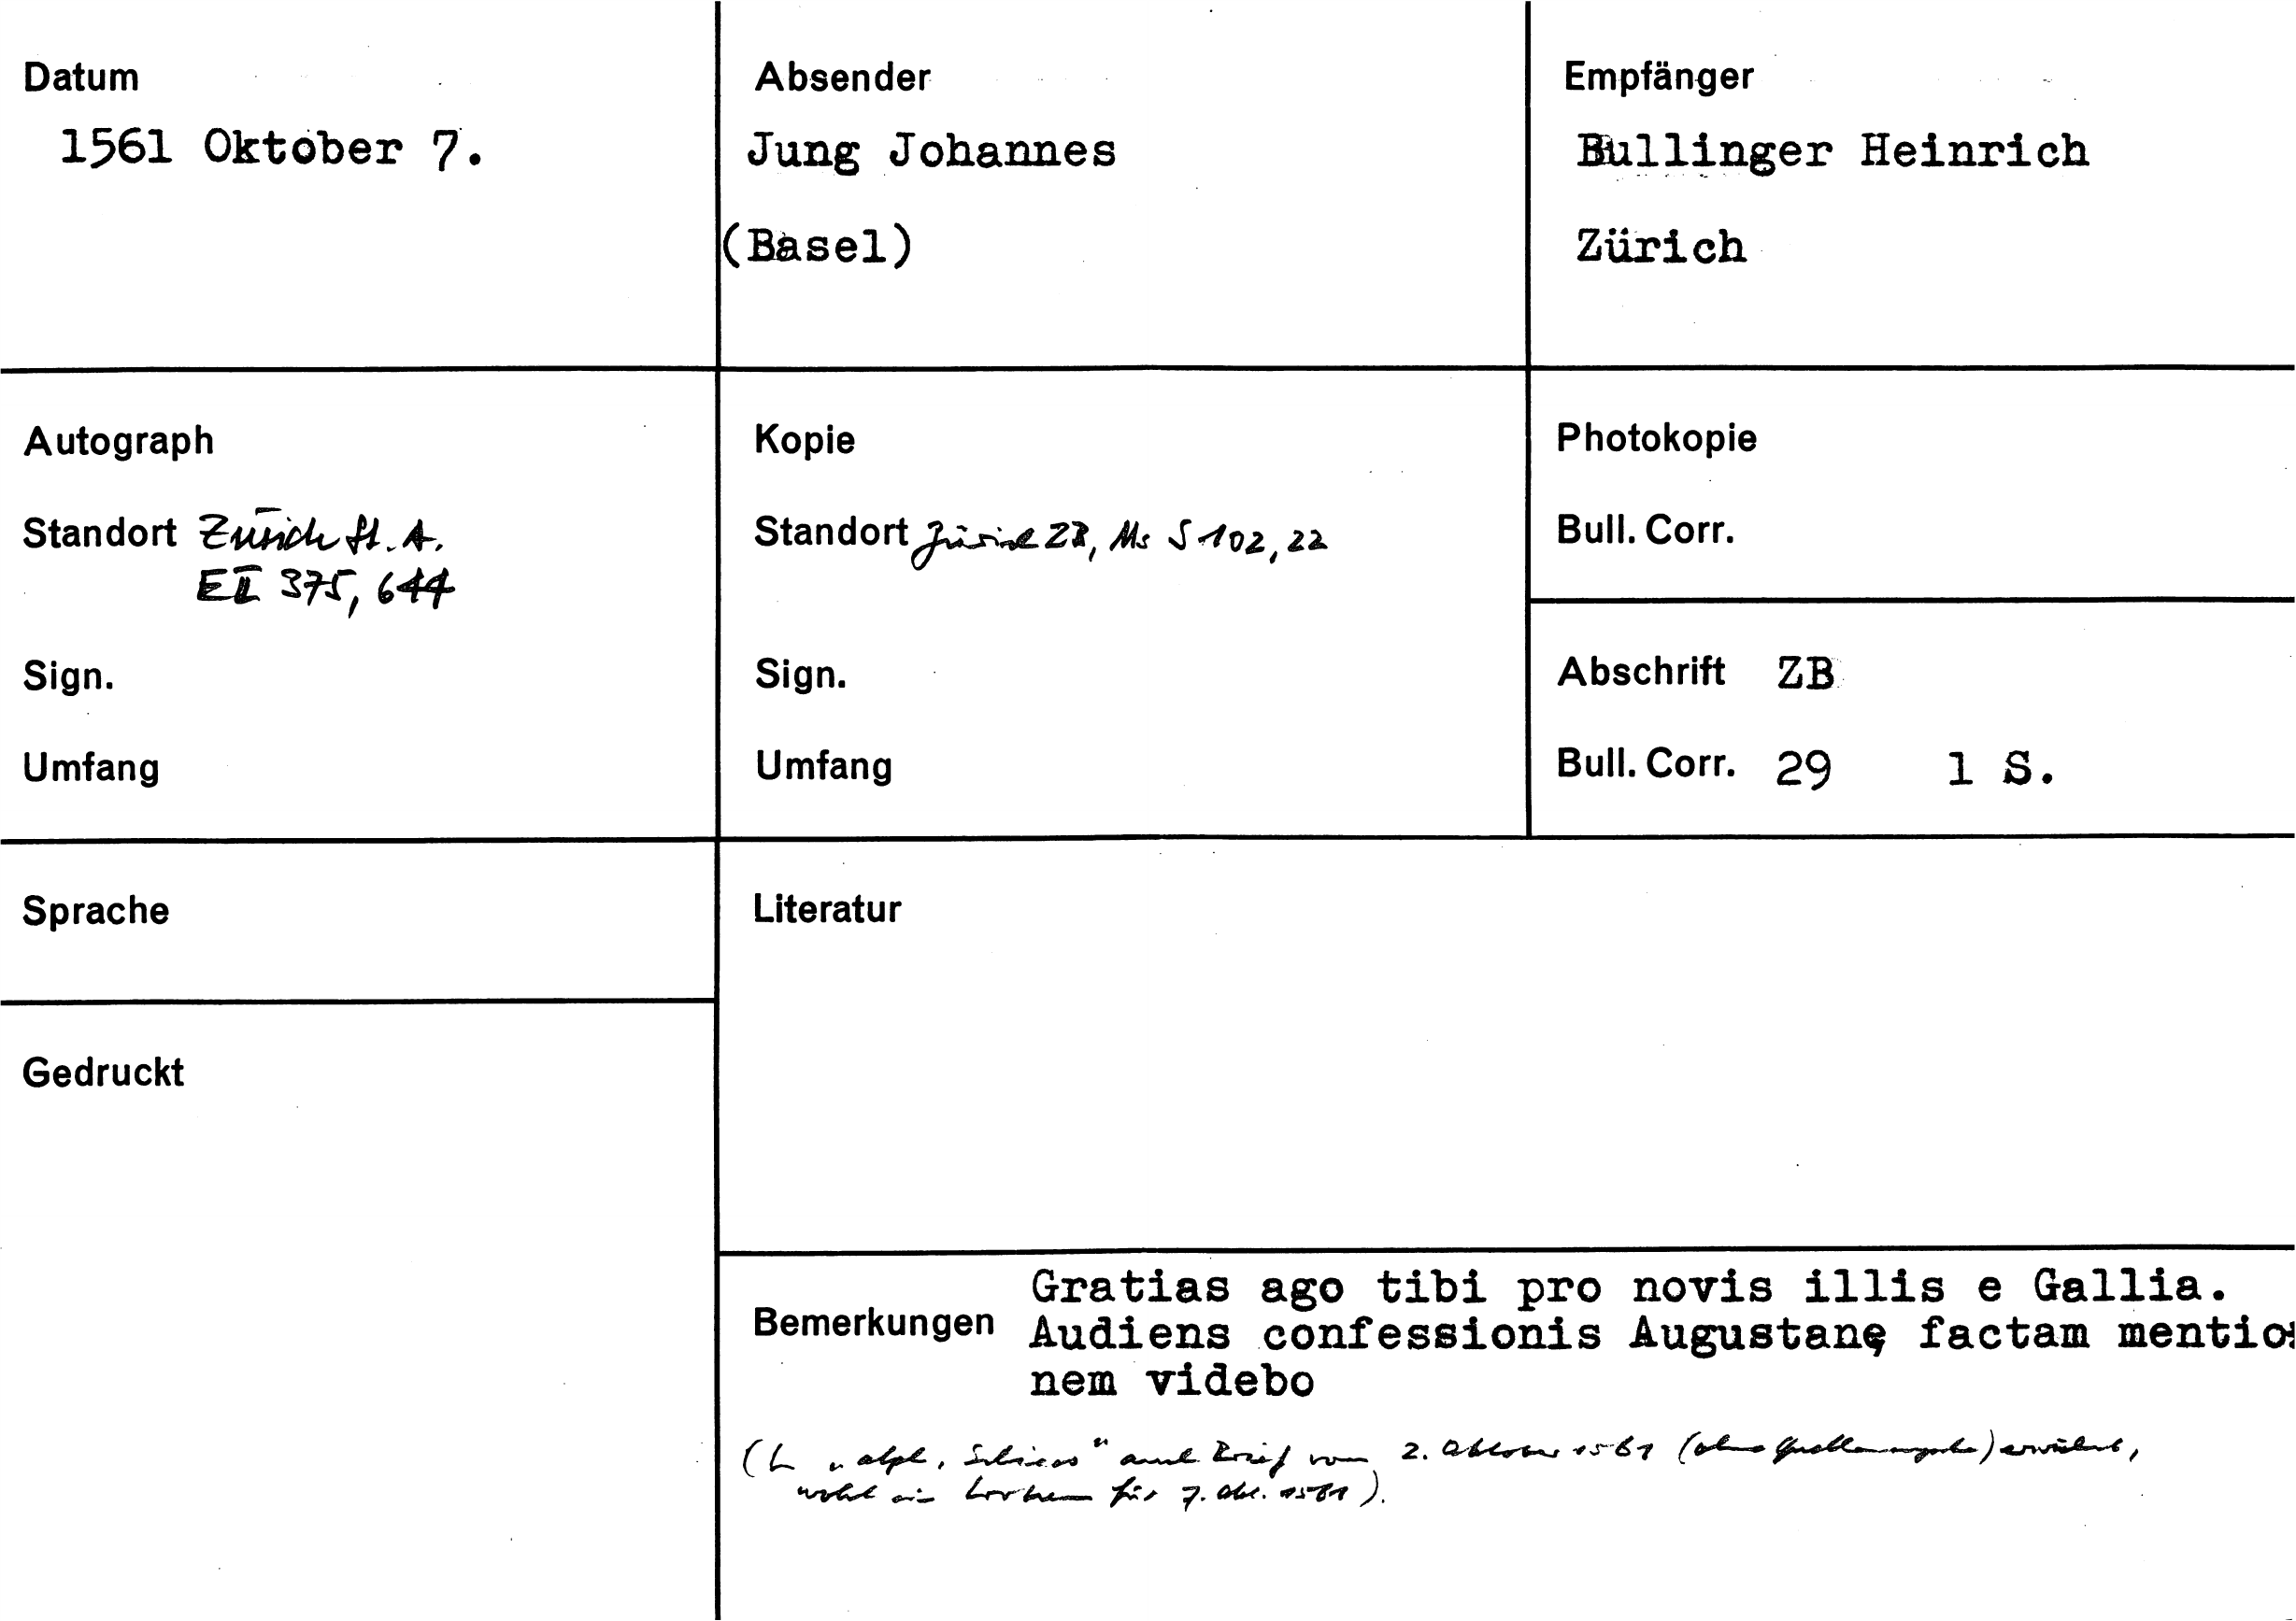 Datum
1561 Oktober 7.
Absender
Jung Johannes
(Basel)
Empfänger
Bullinger Heinrich
Zürich
Autograph
Standort Zürich St. A.
E II 375, 644
Sign.
Umfang
Kopie
Standort Zürich ZB, Ms S 102, 22
Sign.
Umfang
Photokopie
Bull. Corr.
Abschrift ZB
Bull. Corr. 29 1 S.
Sprache
Gedruckt
Literatur
Bemerkungen
Gratias ago tibi pro novis illis e Gallia.
Audiens confessionis Augustanę factam mentio=
nem videbo
( " alph. " auch Brief vom 2. Oktober 1561 (ohne Quellenangabe) erwähnt,
wohl ein für 7. Okt. 1561).